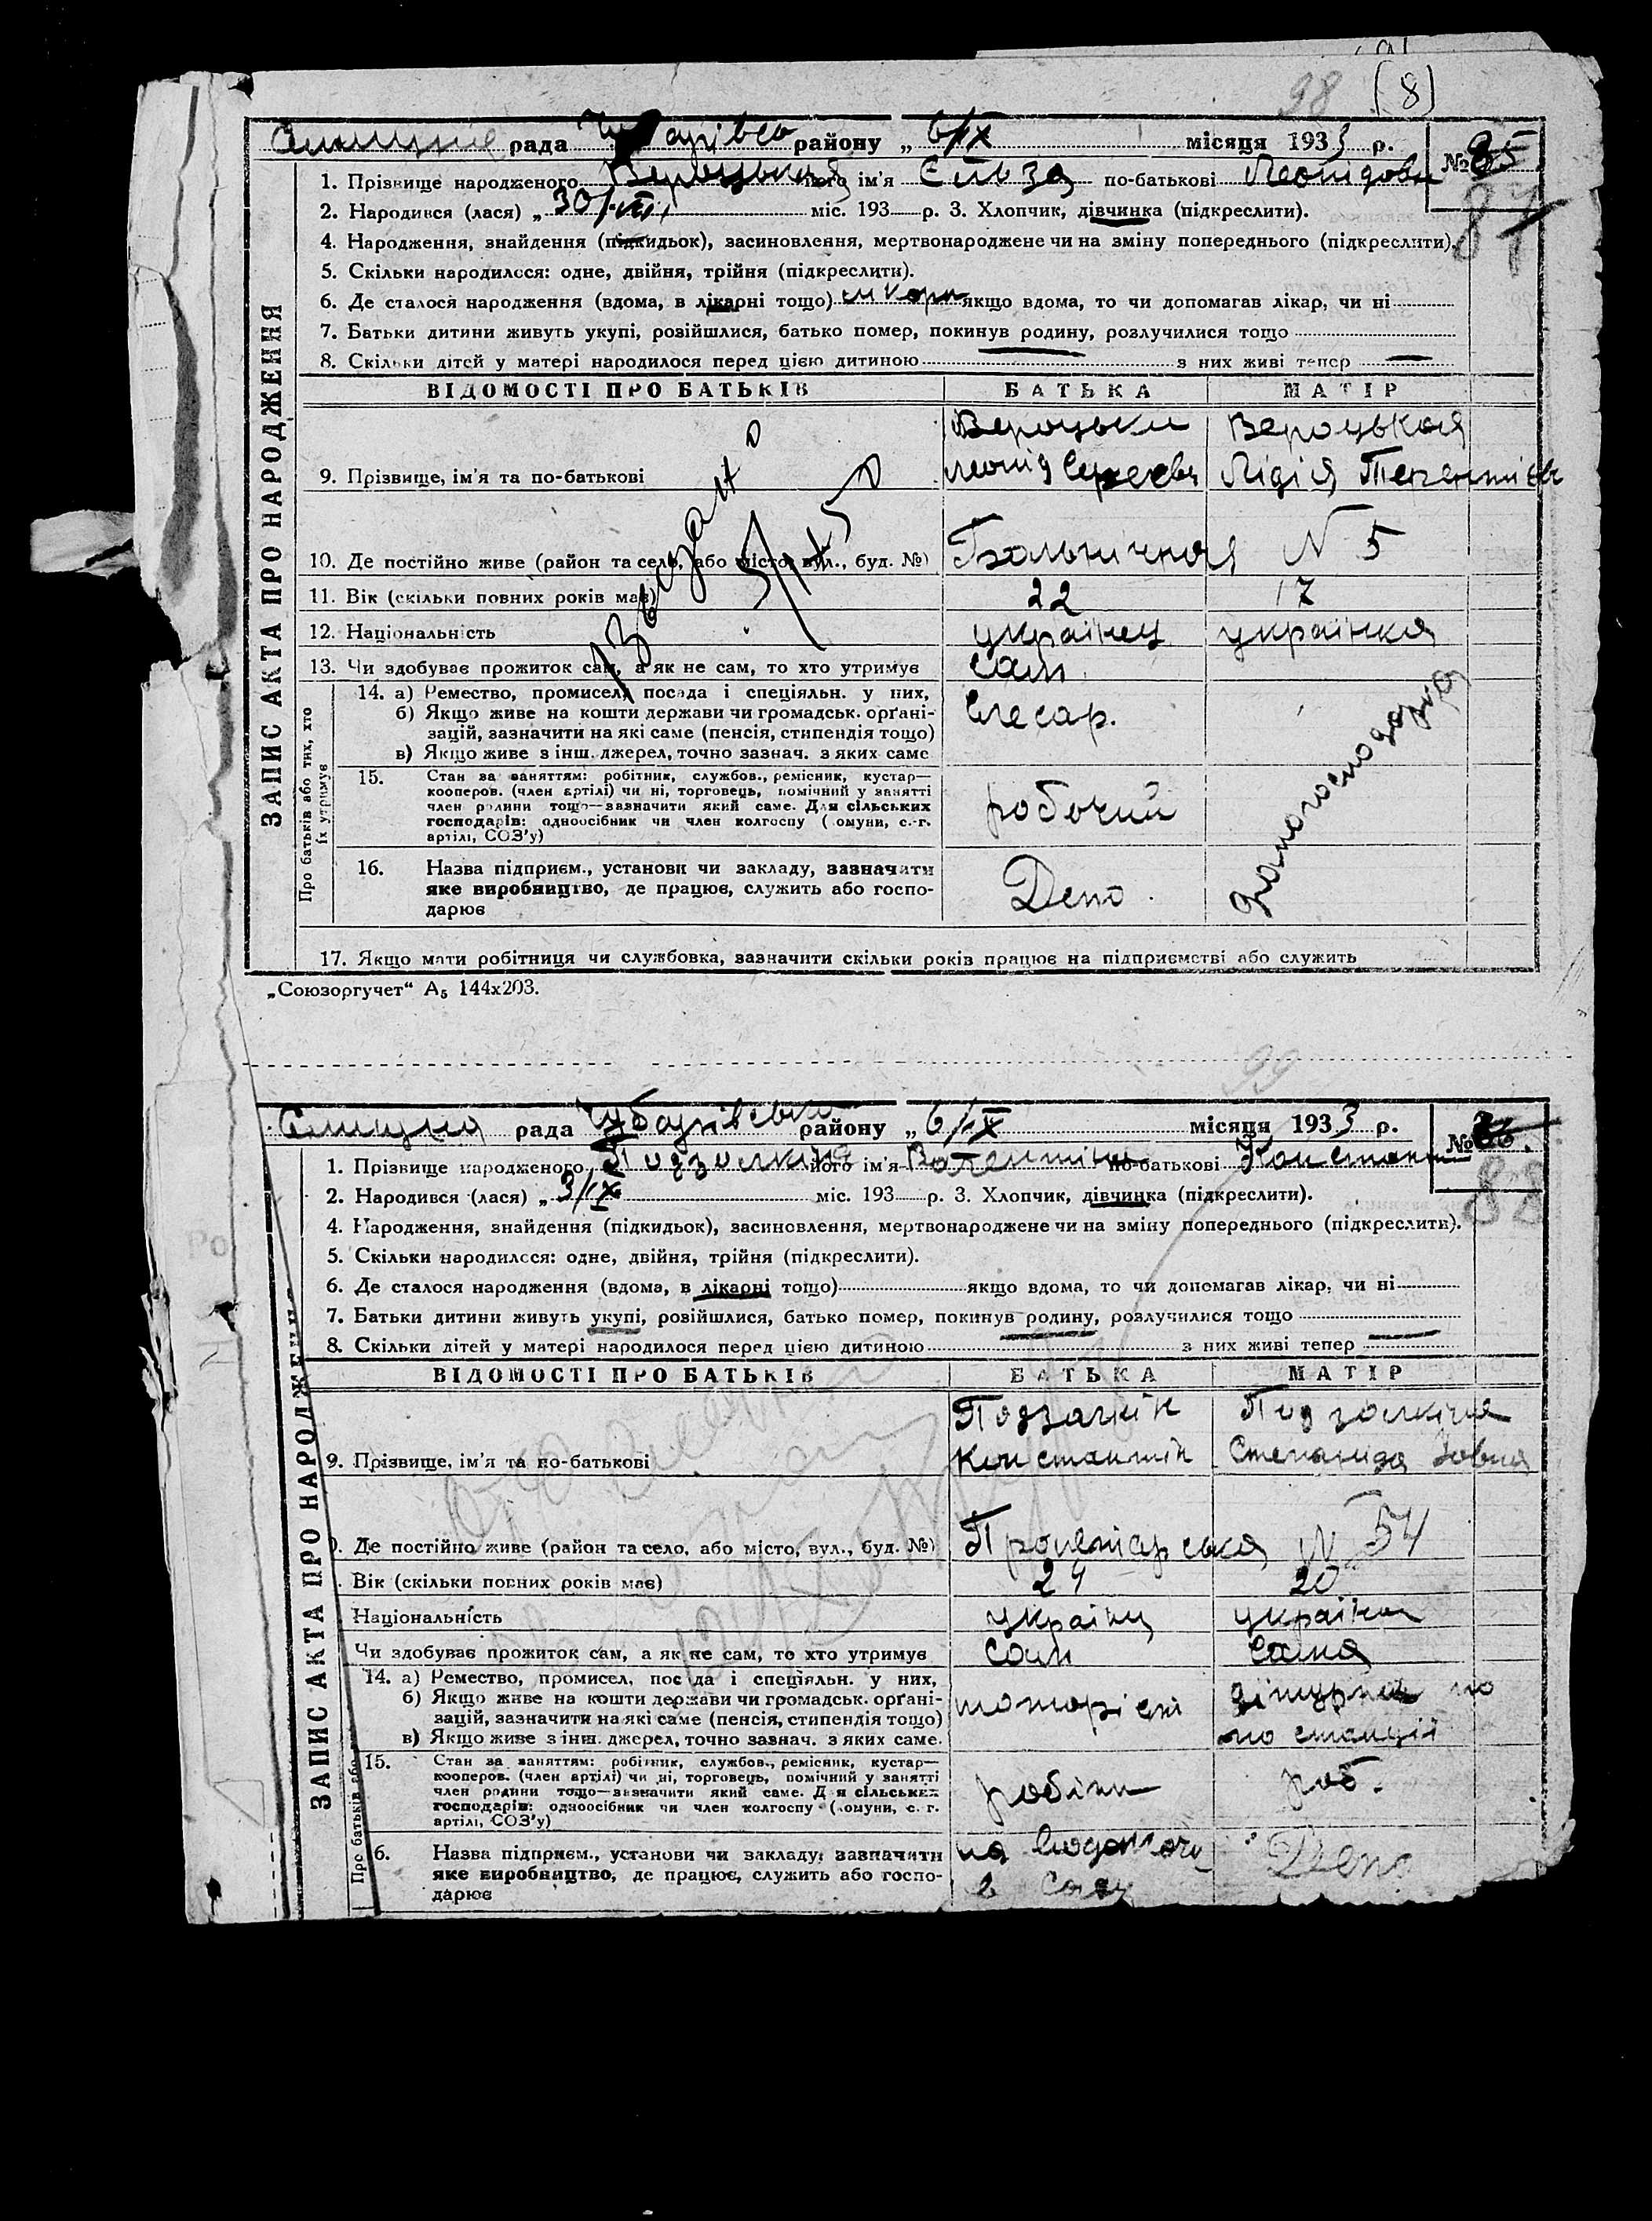 98 (8)
рада Чубарівсь району „ 6/ІХ місяця 1933 р. № 85
87
1. Прізвище народженого Вероцькая його ім'я Єльза по-батькові Леонідовн
2. Народився (лася) „ 30/VIII міс. 193 р. 3. Хлопчик, дівчинка (підкреслити).
4. Народження, знайдення (підкидьок), засиновлення, мертвонароджене чи на зміну попереднього (підкреслити).
5. Скільки народилося: одне, двійня, трійня (підкреслити).
6. Де сталося народження (вдома, в лікарні тощо) якщо вдома, то чи допомагав лікар, чи ні
7. Батьки дитини живуть укупі, розійшлися, батько помер, покинув родину, розлучилися тощо
8. Скільки дітей у матері народилося перед цією дитиною — з них живі тепер —
ЗАПИС АКТА ПРО НАРОДЖЕННЯ
ВІДОМОСТІ ПРО БАТЬКІВ БАТЬКА МАТІР
Вероцьки Вероцькая
9. Прізвище, ім'я та по-батькові Леонід Сергеєвч Лідія Терентієв
10. Де постійно живе (район та село, або місто, вул., буд. №) Больнична я N 5
11. Вік (скільки повних років має) 22 17
12. Національність українец українка
13. Чи здобуває прожиток сам, а як не сам, то хто утримує сам
Про батьків або тих, хто їх утримує
14. а) Ремество, промисел, посада і спеціяльн. у них,
б) Якщо живе на кошти держави чи громадськ. орґані-
зацій, зазначити на які саме (пенсія, стипендія тощо)
в) Якщо живе з інш. джерел, точно зазнач. з яких саме
Слесар.
домогосподарка
15. Стан за заняттям: робітник, службов., ремісник, кустар—
кооперов. (член артілі) чи ні, торговець, помічний у занятті
член родини тощо—зазначити який саме. Для сільських
господарів: одноосібник чи член колгоспу (комуни, с.-г.
артілі, СОЗ'у)
робочий
16. Назва підприєм., установи чи закладу, зазначити
яке виробництво, де працює, служить або госпо-
дарює
Депо
17. Якщо мати робітниця чи службовка, зазначити скільки років працює на підприємстві або служить
„Союзоргучет“ А₅ 144х203.
99
рада Чубарівськи району „ 6/ІХ місяця 1933 р. № 86.
88
1. Прізвище народженого Подзолкіна його ім'я Валентіна по-батькові Констант
2. Народився (лася) „ 3/ІХ міс. 193 р. 3. Хлопчик, дівчинка (підкреслити).
4. Народження, знайдення (підкидьок), засиновлення, мертвонароджене чи на зміну попереднього (підкреслити).
5. Скільки народилося: одне, двійня, трійня (підкреслити).
6. Де сталося народження (вдома, в лікарні тощо) якщо вдома, то чи допомагав лікар, чи ні
7. Батьки дитини живуть укупі, розійшлися, батько помер, покинув родину, розлучилися тощо
8. Скільки дітей у матері народилося перед цією дитиною — з них живі тепер —
ЗАПИС АКТА ПРО НАРОДЖЕНН
ВІДОМОСТІ ПРО БАТЬКІВ БАТЬКА МАТІР
Подзалкін Подзолкіна
9. Прізвище, ім'я та по-батькові Констант​ін Степанида
Де постійно живе (район та село, або місто, вул., буд. №) Пролетарська N 54
Вік (скільки повних років має) 24 20
Національність україн​ц україн​ка
Чи здобуває прожиток сам, а як не сам, то хто утримує сам сама
Про батьків або
14. а) Ремество, промисел, посада і спеціяльн. у них,
б) Якщо живе на кошти держави чи громадськ. орґані-
зацій, зазначити на які саме (пенсія, стипендія тощо)
в) Якщо живе з інш. джерел, точно зазнач. з яких саме.
діжурна по
по станціі
15. Стан за заняттям: робітник, службов., ремісник, кустар—
кооперов. (член артілі) чи ні, торговець, помічний у занятті
член родини тощо—зазначити який саме. Для сільських
господарів: одноосібник чи член колгоспу (комуни, с. г.
артілі, СОЗ'у)
робітн роб.
6. Назва підприєм., установи чи закладу, зазначити
яке виробництво, де працює, служить або госпо-
дарює
на
в Депо